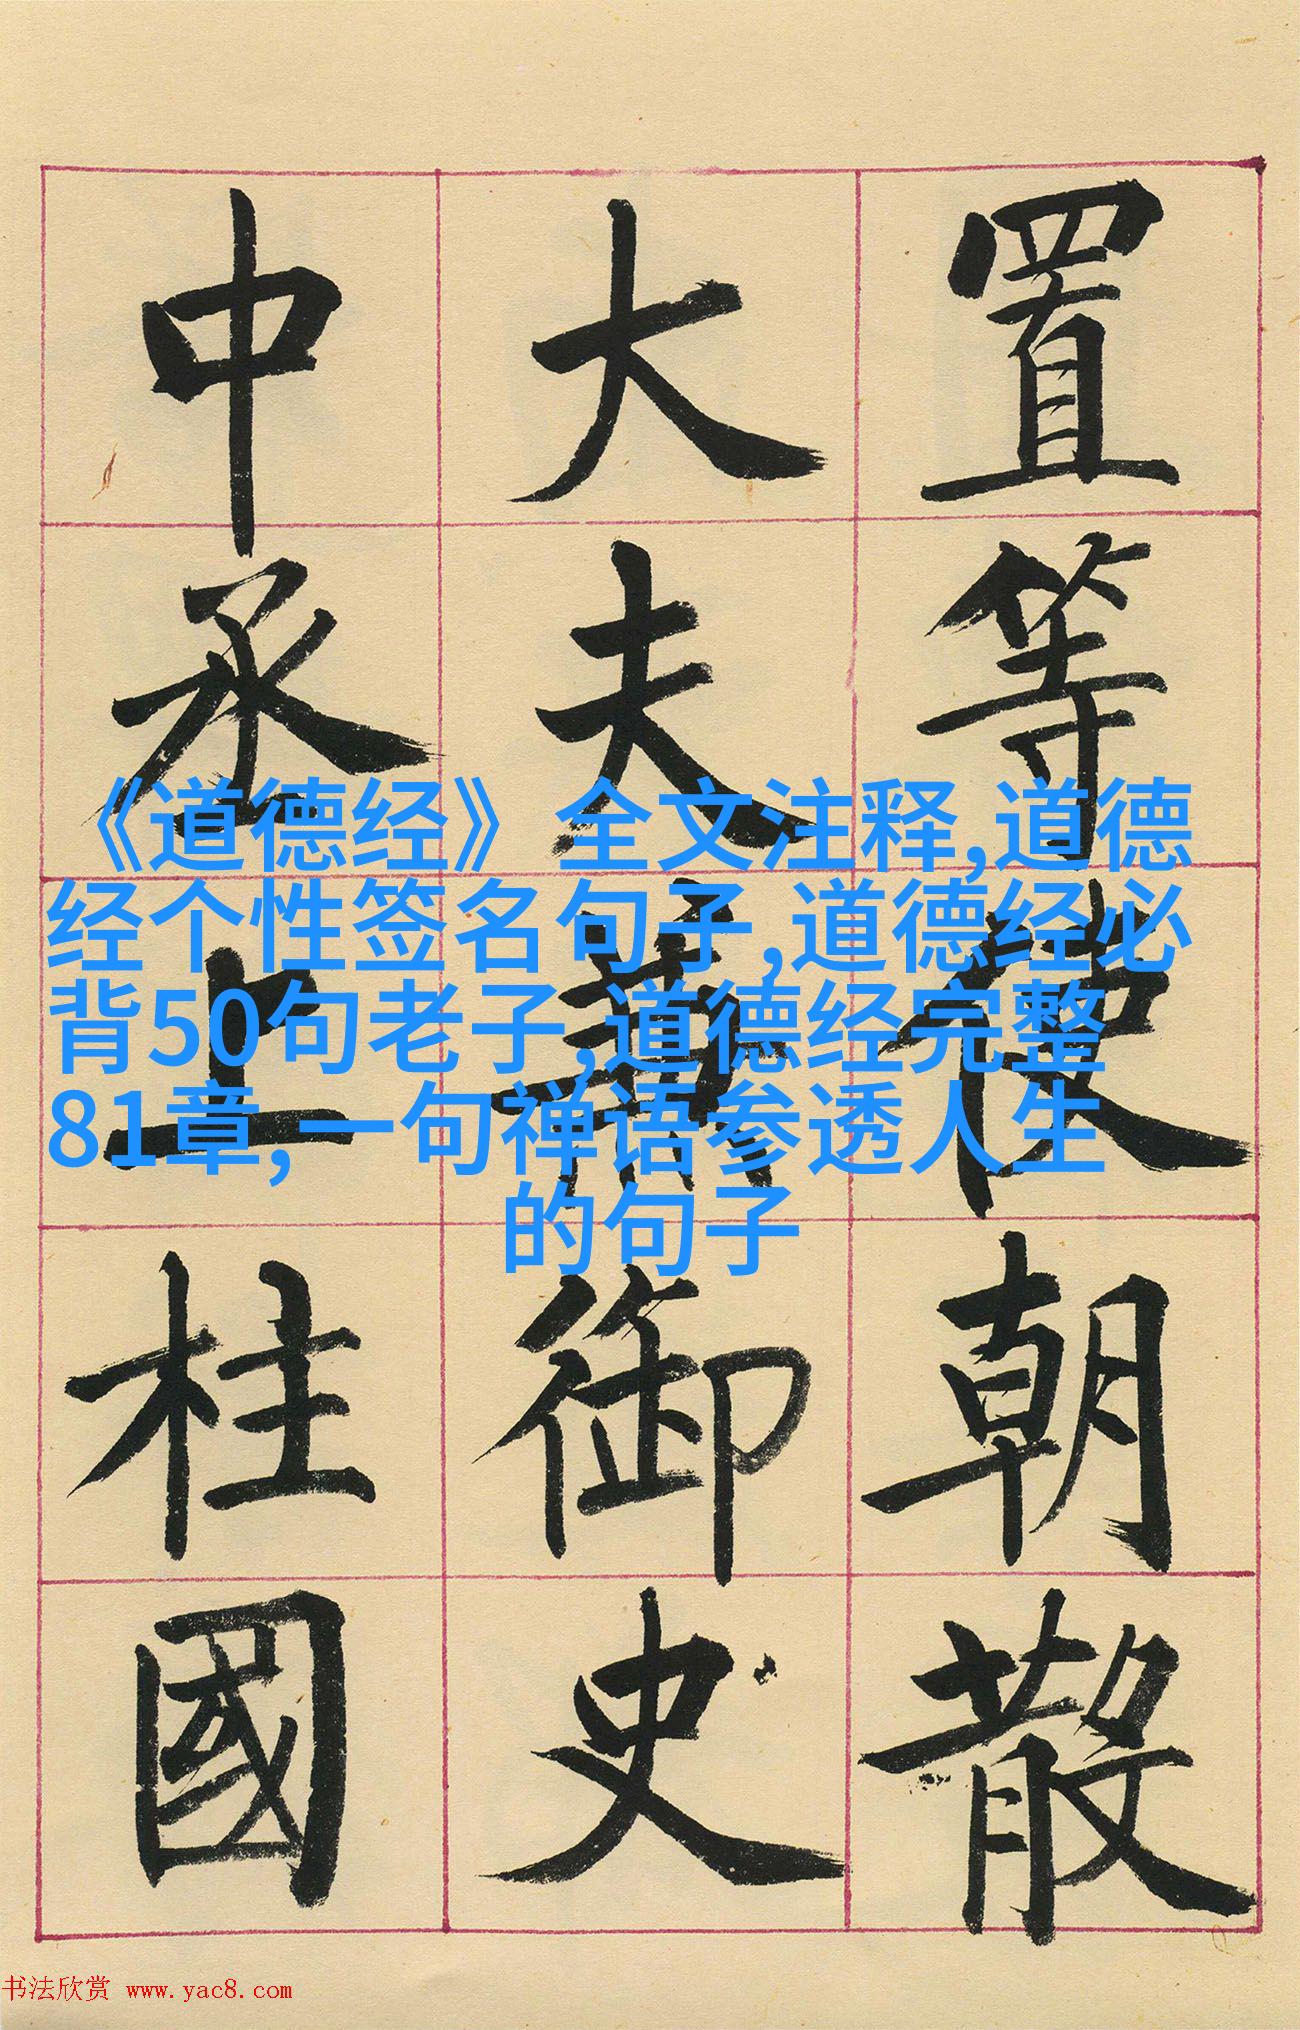 置等使朝散
大夫兼御史
中丞上柱國
《道德经》全文注释,道德
经个性签名句子,道德经必
背50句老子,道德经完整
81章,一句禅语参透人生
的句子
书法欣赏 www.yac8.com